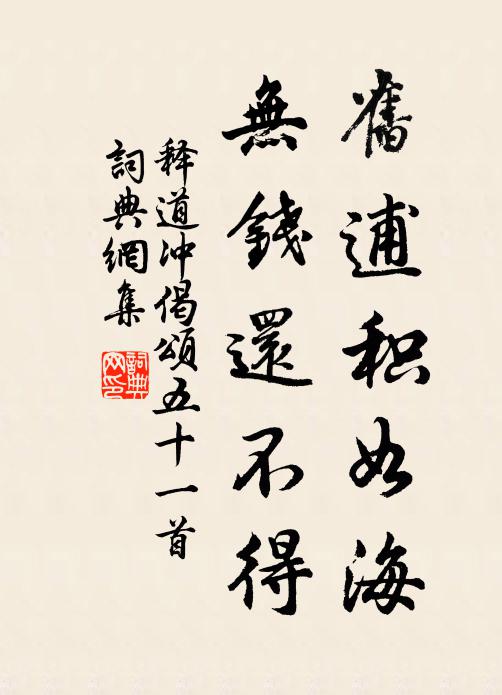 舊逋积如海
無錢還不得
释道冲偈頌五十一首
詞典網集
詞典网印